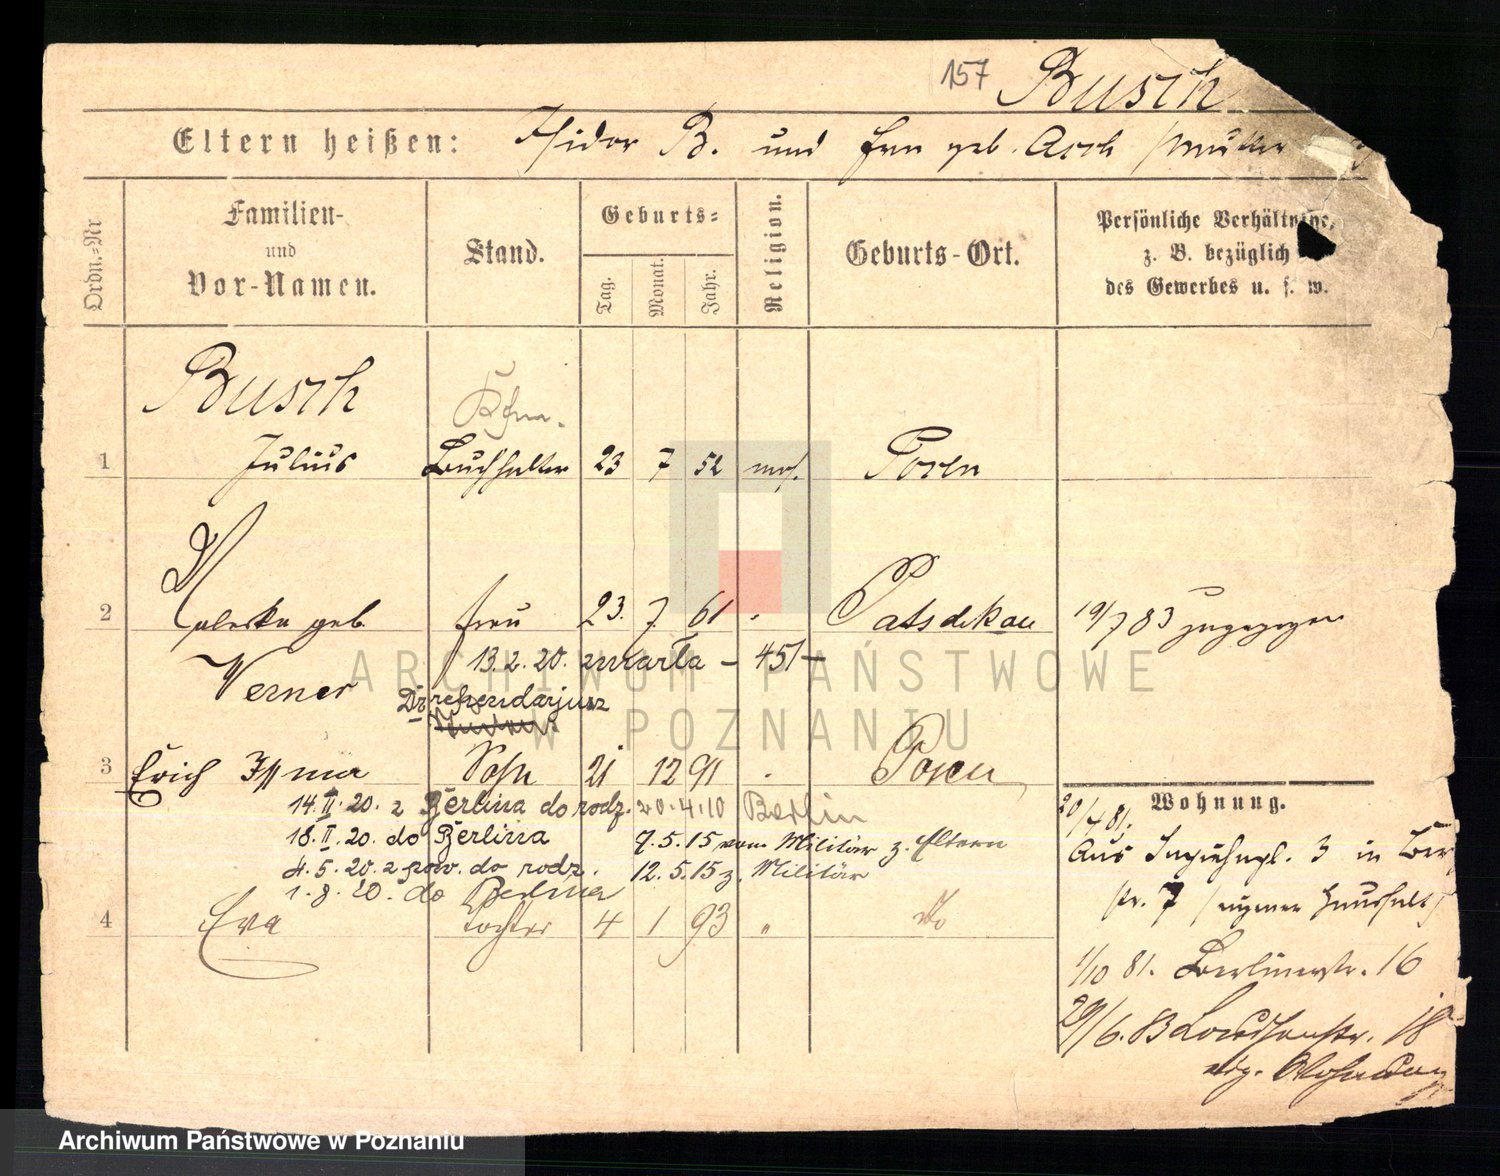 157 Busch
Eltern heißen: Isidor B. und Frau geb. Asch /Mutter
Ordn.-Nr
Familien-
und
Vor-Namen.
Stand.
Geburts-
Tag.
Monat.
Jahr.
Religion.
Geburts-Ort.
Persönliche Verhältnisse,
z. B. bezüglich
des Gewerbes u. s. w.
Busch
1 Julius Buchhalter 23 7 52 mos. Posen
2 Valeska geb. Frau 23. 7 61 " Patschkau 19/7 83 zugezogen
Werner 13. 2. 20. zmarła – 451 –
Dr referendarjusz
3 Erich Sohn 21 12 91 " Posen
14. II. 20. z Berlina do rodz. 20. 4. 10 Berlin
18. II. 20. do Berlina 7. 5. 15 vom Militär z. Eltern
4. 5. 20. z pow. do rodz. 12. 5. 15 z. Militär
1. 8. 20. do Berlina
4 Eva Tochter 4 1 93 " do
Wohnung.
20/7 81. Aus 3 in Ber
str. 7 / eigener Haushalt/
1/10 81. Berlinerstr. 16
29/6. 83 18
Wohnung
ARCHIWUM PAŃSTWOWE
W POZNANIU
Archiwum Państwowe w Poznaniu